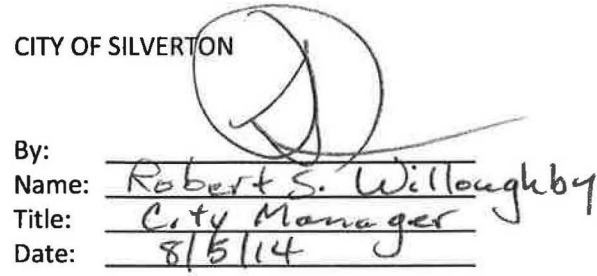 CITY OF SILVERTON
By:
Name: Robert S. Willoughby
Title: City Manager
Date: 8/5/14